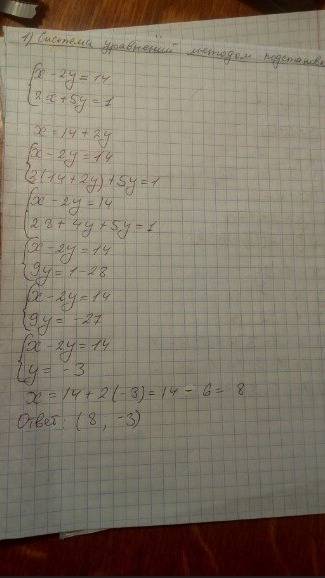 1) Система уравнений методом подстановки
{x - 2y = 14
{2x + 5y = 1
x = 14 + 2y
{x - 2y = 14
{2(14 + 2y) + 5y = 1
{x - 2y = 14
{28 + 4y + 5y = 1
{x - 2y = 14
{9y = 1 - 28
{x - 2y = 14
{9y = -27
{x - 2y = 14
{y = -3
x = 14 + 2(-3) = 14 - 6 = 8
Ответ: (8, -3)